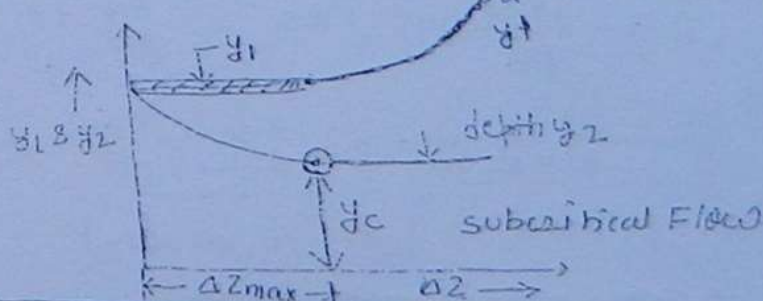 y1
y1
y1 & y2
depth y2
yc
subcritical Flow
ΔZmax
ΔZ